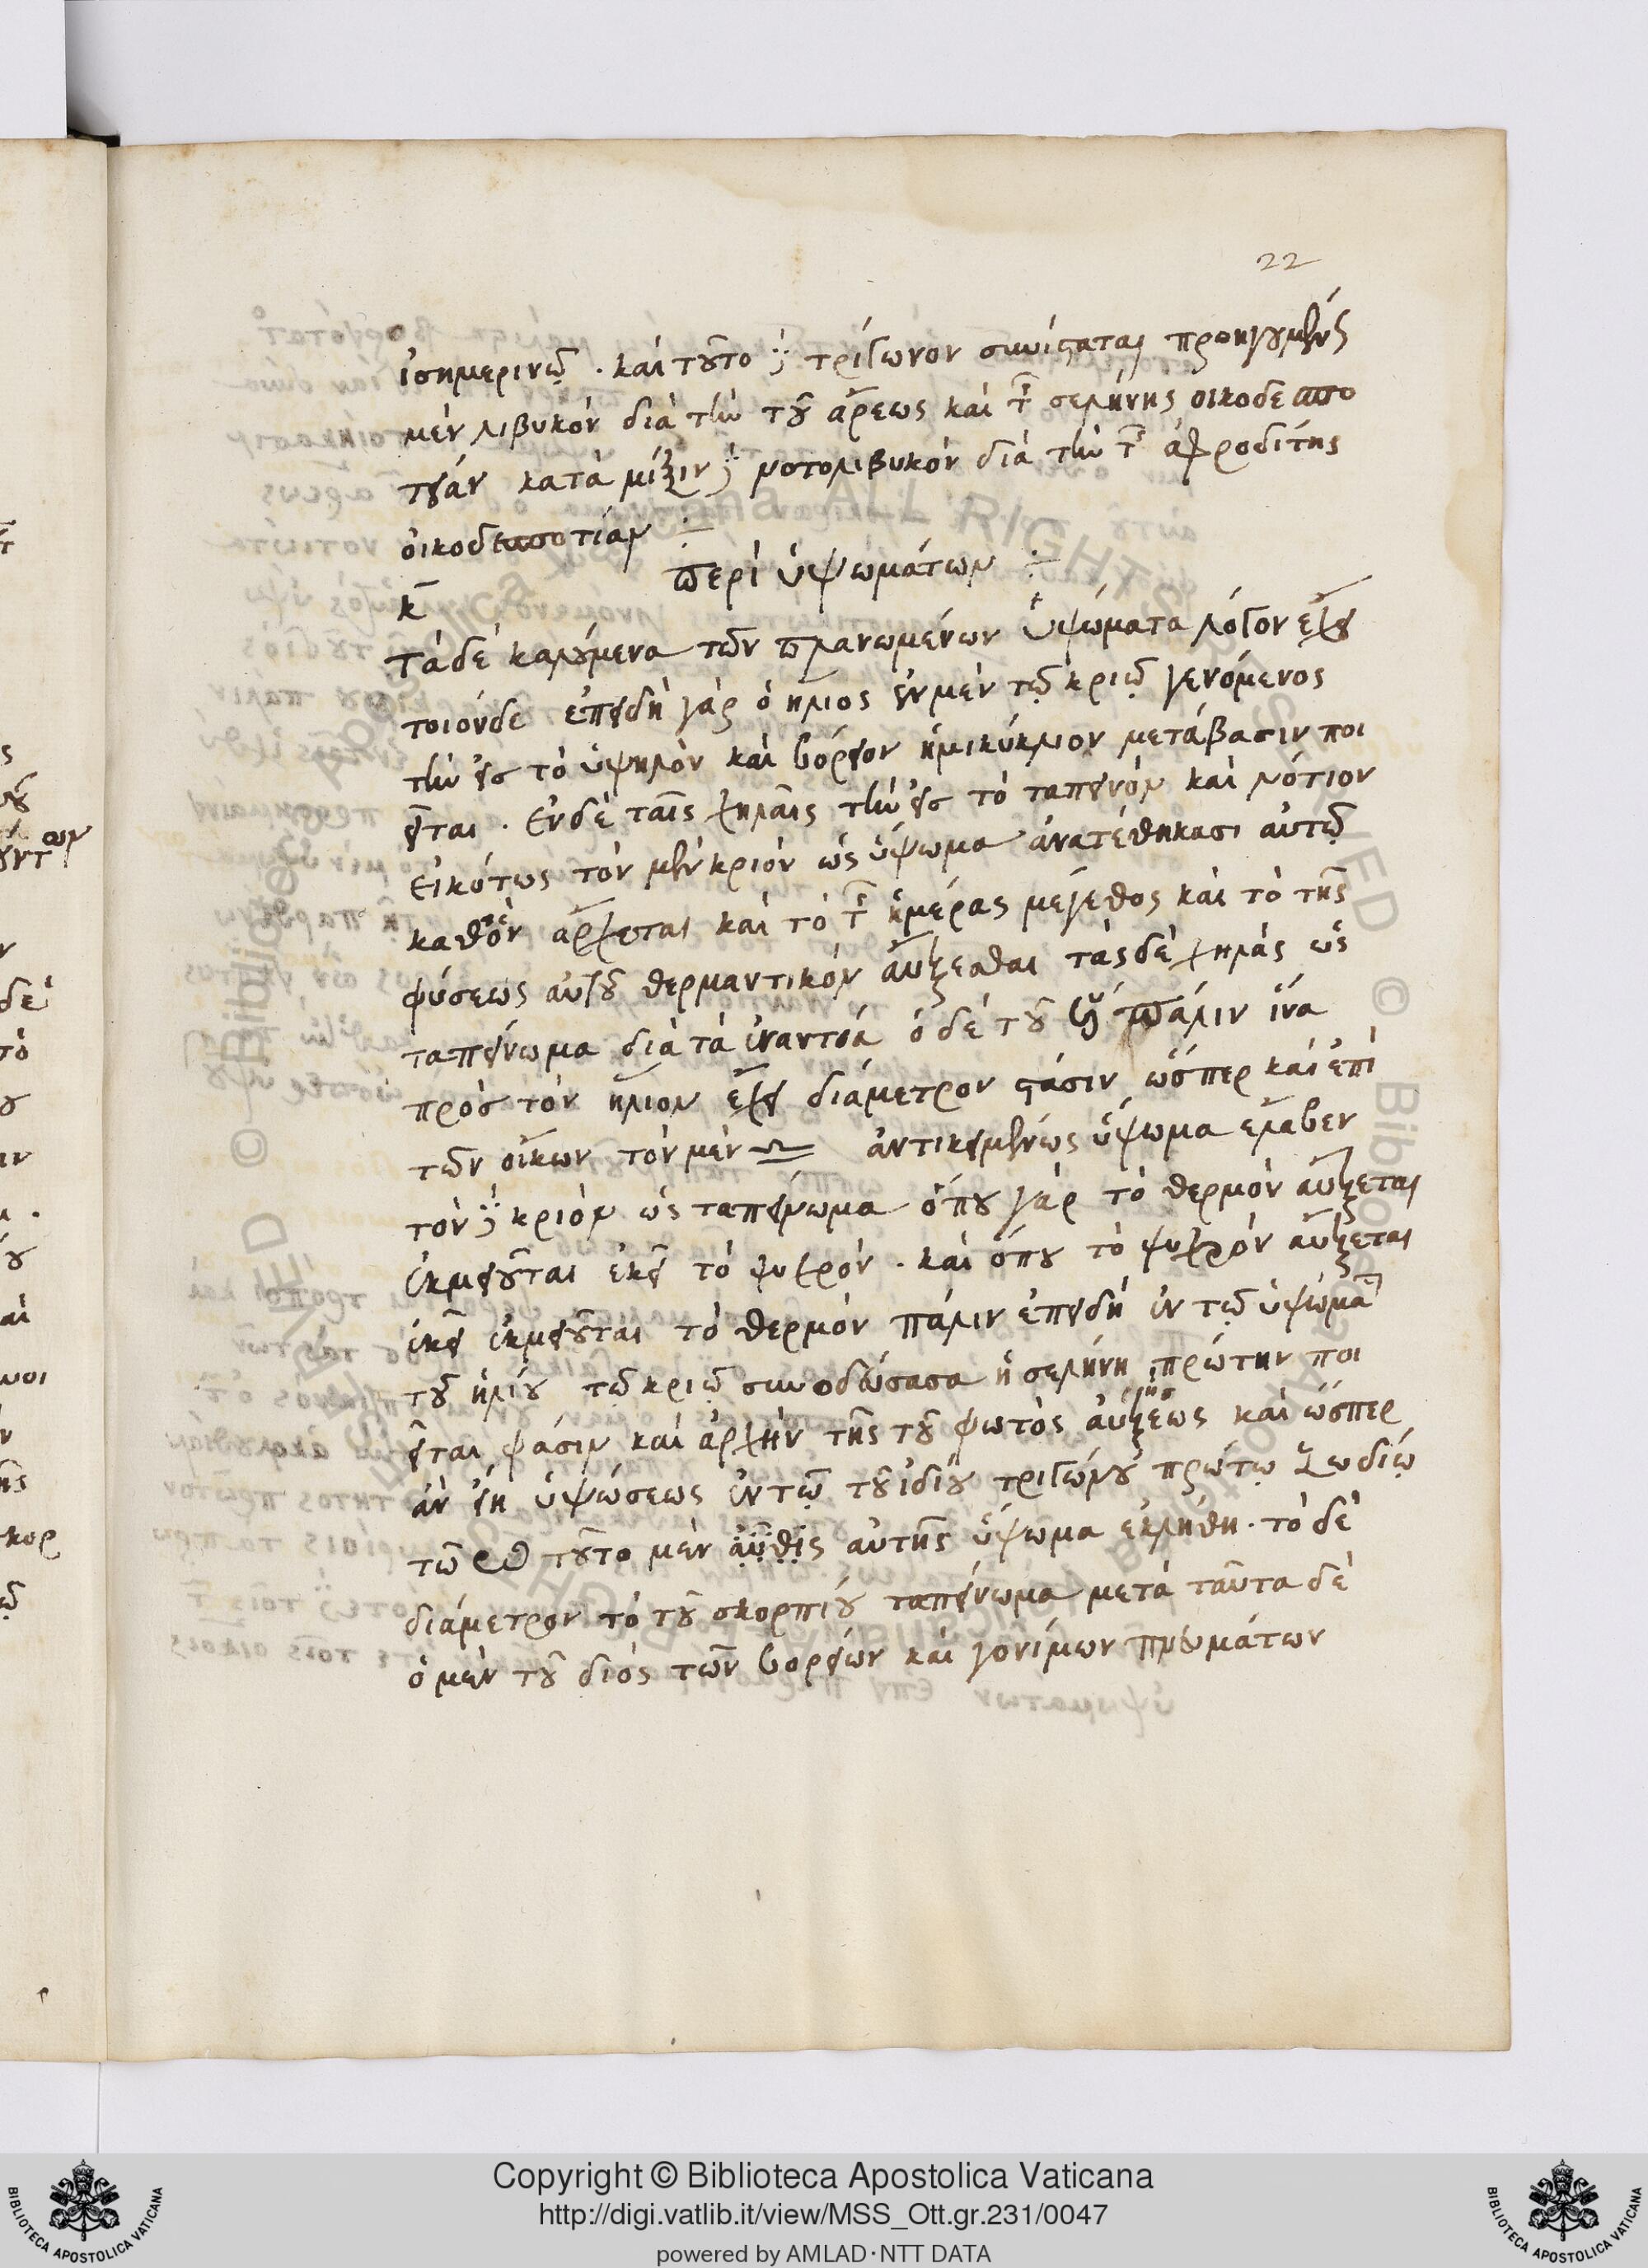 22
ἰσημερινῷ. καὶ τοῦτο δὲ τρίγωνον συνίσταται προηγουμένως
μὲν λιβυκὸν διὰ τὴν τοῦ ἄρεως καὶ τῆς σελήνης οἰκοδεσπο
τείαν κατὰ μίξιν δὲ νοτολιβυκὸν διὰ τὴν τῆς ἀφροδίτης
οἰκοδεσποτίαν
περὶ ὑψωμάτων
κ
τὰ δὲ καλούμενα τῶν πλανωμένων ὑψώματα λόγον ἔχει
τοιόνδε ἐπειδὴ γὰρ ὁ ἥλιος ἐν μὲν τῷ κριῷ γενόμενος
τὴν εἰς τὸ ὑψηλὸν καὶ βόρειον ἡμικύκλιον μετάβασιν ποι
εῖται. ἐν δὲ ταῖς χηλαῖς τὴν εἰς τὸ ταπεινὸν καὶ νότιον
εἰκότως τὸν μὲν κριὸν ὡς ὕψωμα ἀνατέθηκασι αὐτῷ
καθ' ὃν ἄρχεται καὶ τὸ τῆς ἡμέρας μέγεθος καὶ τὸ τῆς
φύσεως αὐτοῦ θερμαντικὸν αὔξεσθαι τὰς δὲ χηλὰς ὡς
ταπείνωμα διὰ τὰ ἐναντία ὁ δὲ τοῦ ♄ πάλιν ἵνα
πρὸς τὸν ἥλιον ἔχει διάμετρον στάσιν ὥσπερ καὶ ἐπὶ
τῶν οἴκων τὸν μὲν ♎ ἀντικειμένως ὕψωμα ἔλαβεν
τὸν δὲ κριὸν ὡς ταπείνωμα ὅπου γὰρ τὸ θερμὸν αὔξεται
ἐκμειοῦται ἐκεῖ τὸ ψυχρόν. καὶ ὅπου τὸ ψυχρὸν αὔξεται
ἐκεῖ ἐκμειοῦται τὸ θερμὸν πάλιν ἐπειδὴ ἐν τῷ ὑψώματι
τοῦ ἡλίου τῷ κριῷ συνοδεύσασα ἡ σελήνη πρώτην ποι
εῖται φάσιν καὶ ἀρχὴν τῆς τοῦ φωτὸς αὐξήσεως καὶ ὥσπερ
ἂν εἴη ὑψώσεως ἐν τῷ τοῦ ἰδίου τριγώνου πρώτῳ ζωδίῳ
τῷ ♉ τοῦτο μὲν αὖθις αὐτῆς ὕψωμα ἐκλήθη. τὸ δὲ
διάμετρον τὸ τοῦ σκορπίου ταπείνωμα μετὰ ταῦτα δὲ
ὁ μὲν τοῦ διὸς τῶν βορείων καὶ γονίμων πνευμάτων
Copyright © Biblioteca Apostolica Vaticana
http://digi.vatlib.it/view/MSS_Ott.gr.231/0047
powered by AMLAD·NTT DATA
BIBLIOTECA APOSTOLICA VATICANA
BIBLIOTECA APOSTOLICA VATICANA